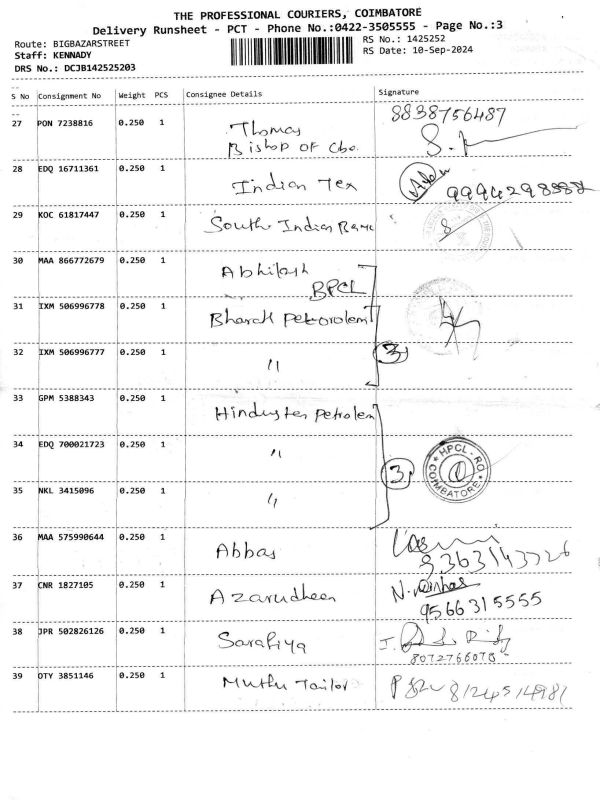 THE PROFESSIONAL COURIERS, COIMBATORE
Delivery Runsheet - PCT - Phone No.:0422-3505555 - Page No.:3
Route: BIGBAZARSTREET
RS No.: 1425252
Staff: KENNADY
RS Date: 10-Sep-2024
DRS No.: DCJB142525203
S No Consignment No Weight PCS Consignee Details Signature
27 PON 7238816 0.250 1 Thomas 8838756487
Bishop of Cbe.
28 EDQ 16711361 0.250 1 Indian Tex
29 KOC 61817447 0.250 1 South Indian Bank
30 MAA 866772679 0.250 1 Abhilash
BPCL
31 IXM 506996778 0.250 1 Bharath Petrorolem
32 IXM 506996777 0.250 1 " 3
33 GPM 5388343 0.250 1 Hindusten Petrolem
34 EDQ 700021723 0.250 1 " 3 HPCL - RO COIMBATORE
35 NKL 3415096 0.250 1 "
36 MAA 575990644 0.250 1 Abbas
37 CNR 1827105 0.250 1 Azarudheen
9566315555
38 JPR 502826126 0.250 1 Sarafiya
8072766078
39 OTY 3851146 0.250 1 Muthu Tailor 8124514981